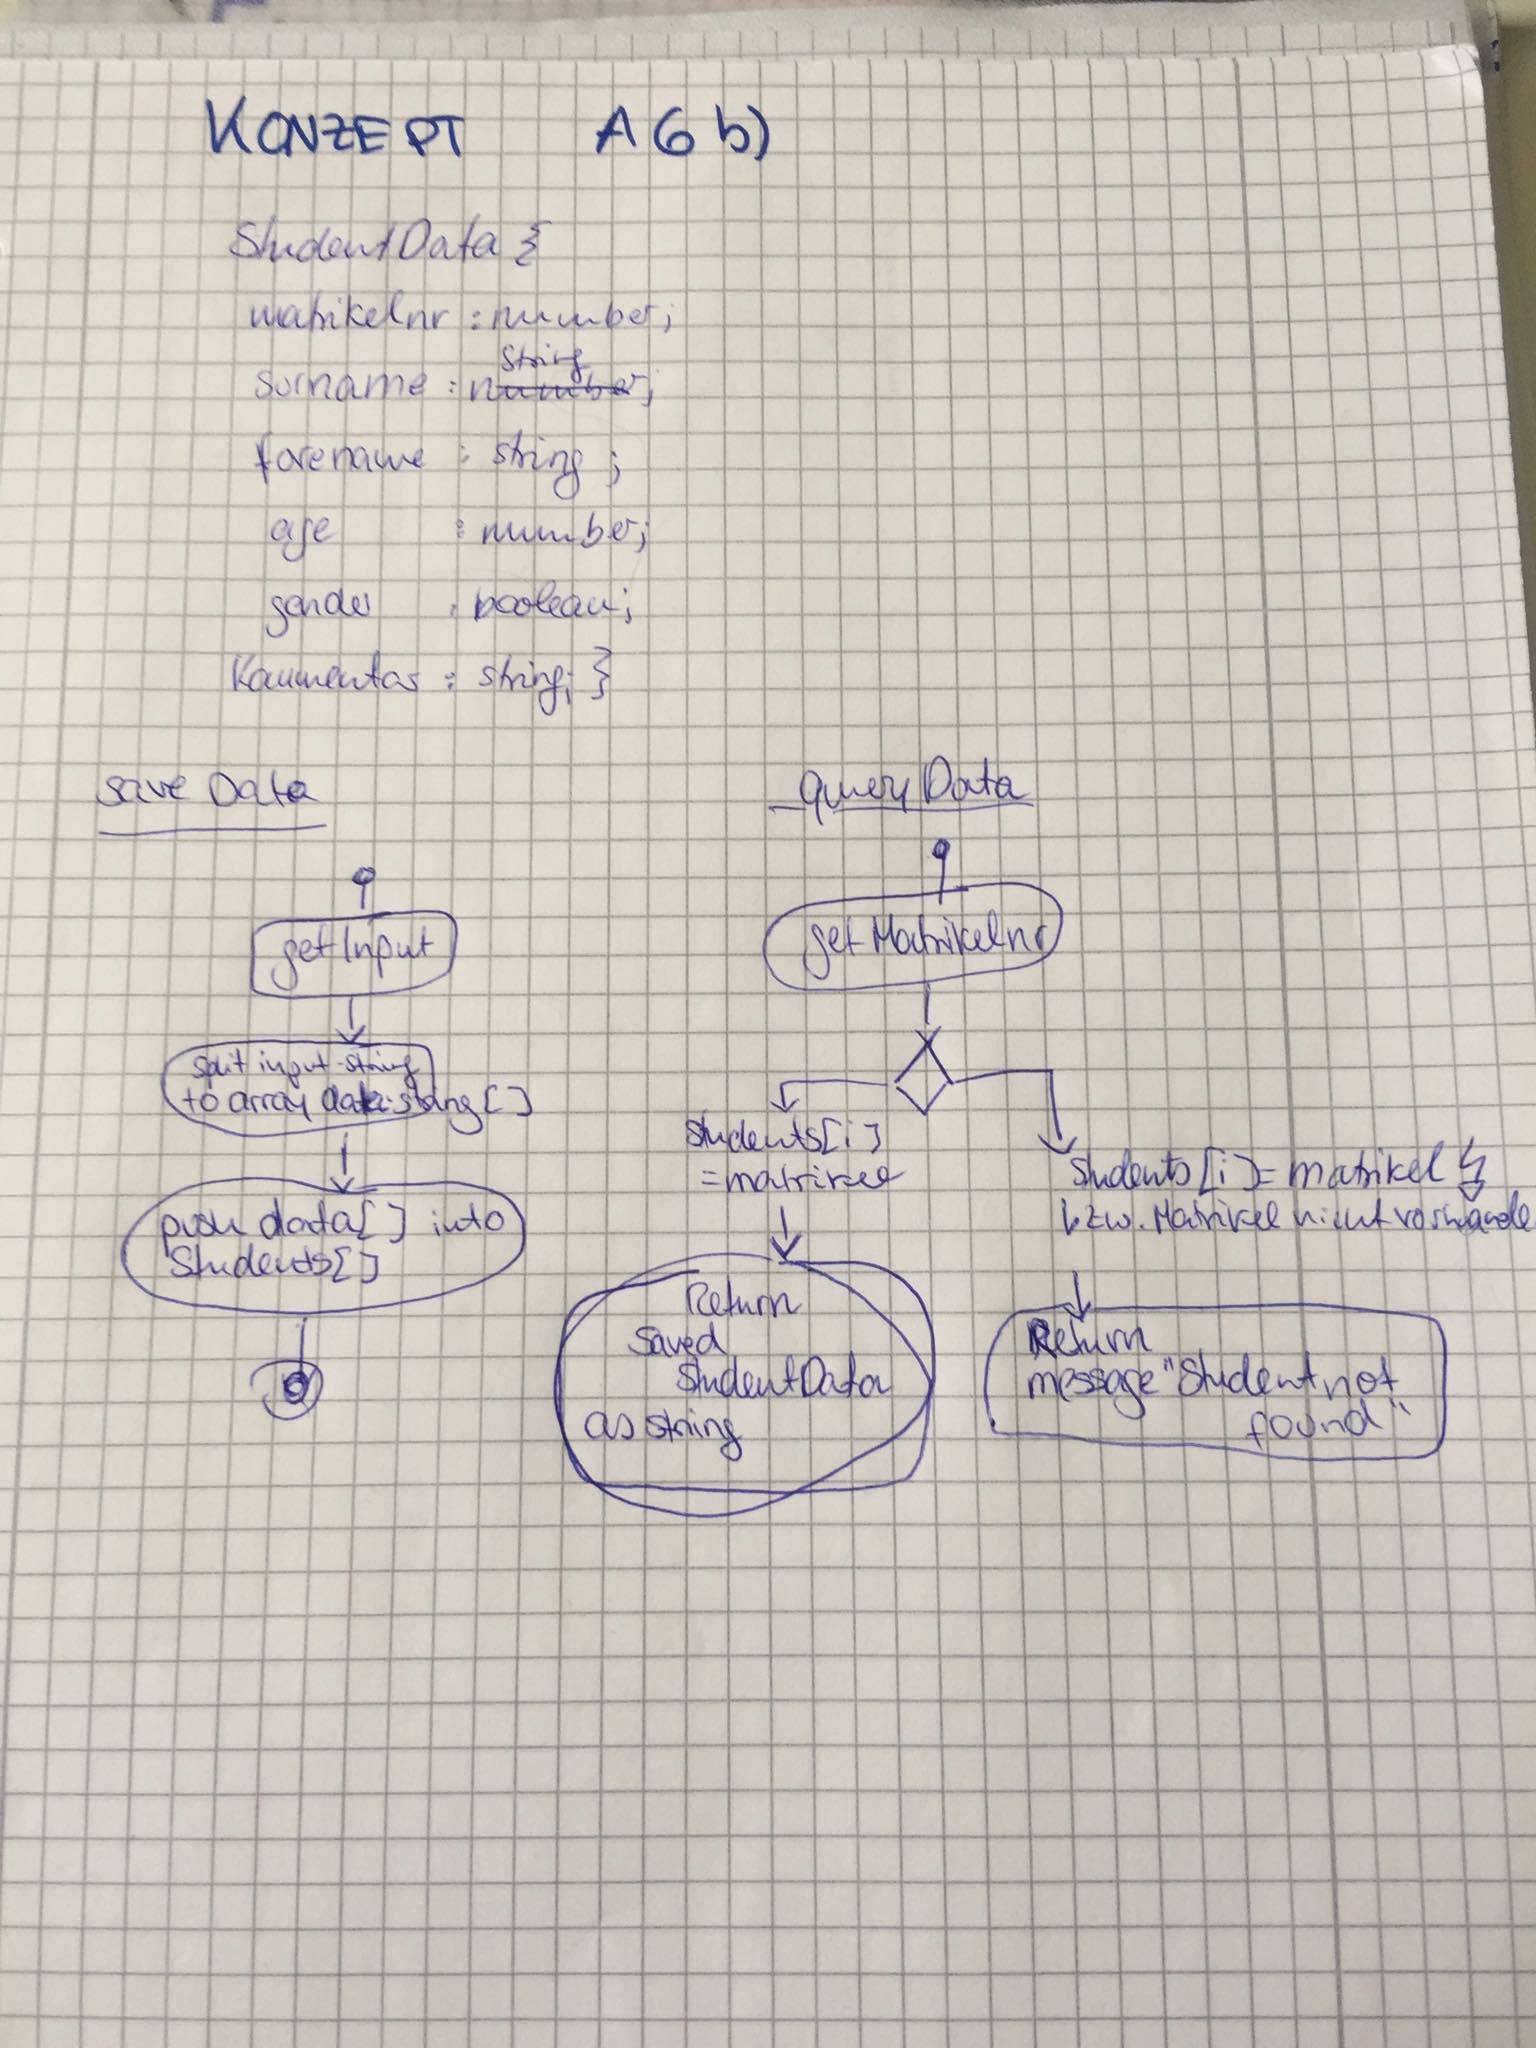 KONZEPT A6 b)
StudentData {
matrikelnr : number;
String
surname : number;
forename : string ;
age : number;
gender : boolean;
Kommentar : string; }
save Data
queryData
getInput
split input-string
to array data:string[]
push data[] into
Students[]
getMatrikelnr
Students[i]
= matrikel
Students[i] = matrikel
bzw. Matrikel nicht vorhande
Return
saved
StudentData
as string
Return
message "Student not
found"